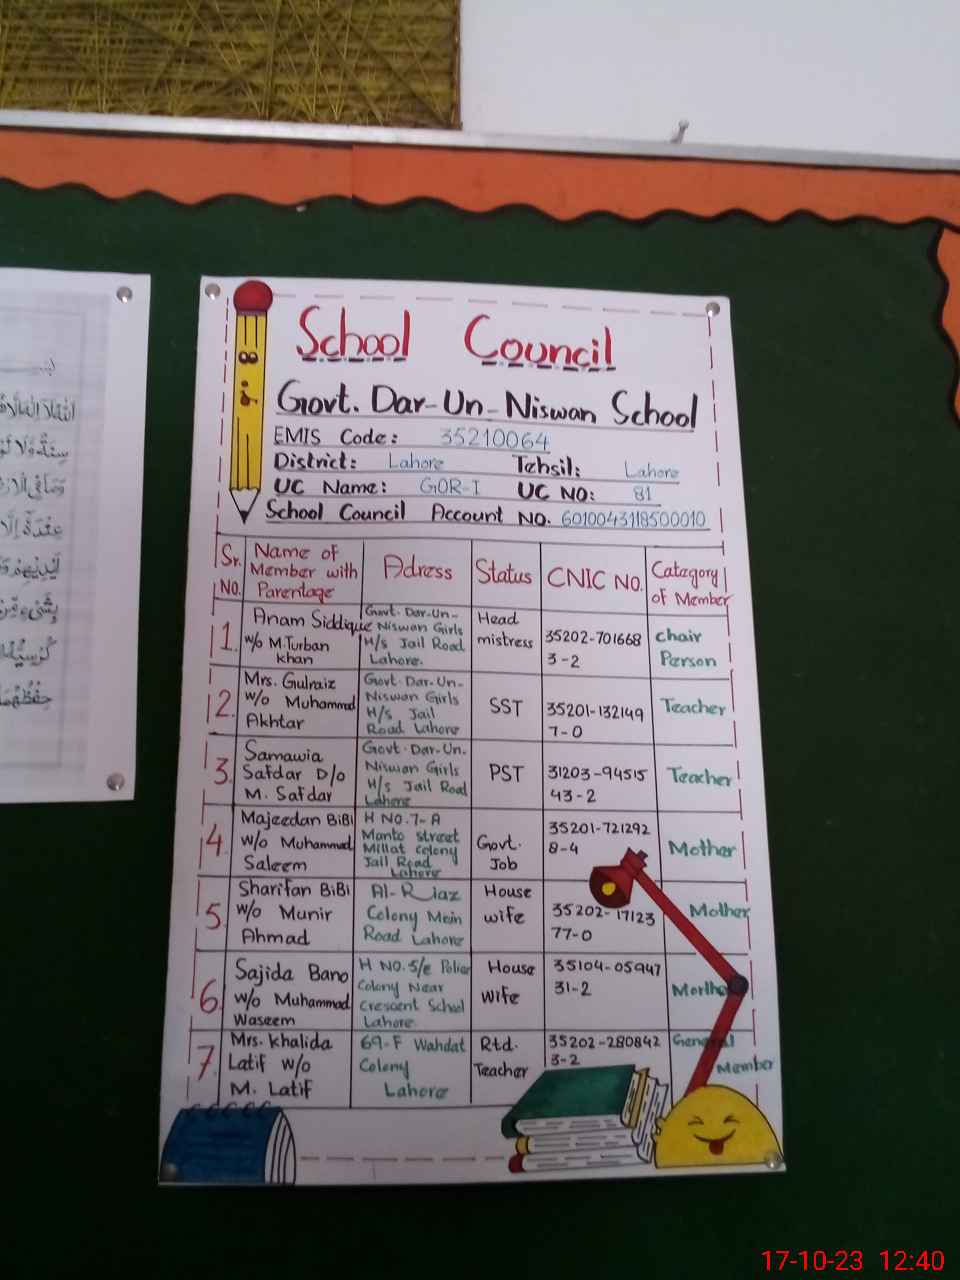 School Council
Govt. Dar-Un-Niswan School
EMIS Code: 35210064
District: Lahore Tehsil: Lahore
UC Name: GOR-I UC NO: 81
School Council Account NO. 6010043118500010
Sr. NO. Name of Member with Parentage Adress Status CNIC NO. Category of Member
1. Anam Siddique w/o M.Turban khan Govt. Dar-Un-Niswan Girls H/s Jail Road Lahore. Head mistress 35202-701668 3-2 chair Person
2. Mrs. Gulraiz w/o Muhammad Akhtar Govt. Dar-Un-Niswan Girls H/s Jail Road Lahore SST 35201-132149 7-0 Teacher
3. Samawia Safdar D/o M. Safdar Govt. Dar-Un. Niswan Girls H/s Jail Road Lahore PST 31203-94515 43-2 Teacher
4. Majeedan BiBi w/o Muhammad Saleem H NO.7-A Manto street Millat Colony Jail Road Lahore Govt. Job 35201-721292 8-4 Mother
5. Sharifan BiBi w/o Munir Ahmad Al-Riaz Colony Mein Road Lahore House wife 35202-17123 77-0 Mother
6. Sajida Bano w/o Muhammad Waseem H NO.5/e Police Colony Near Crescent School Lahore. House wife 35104-05947 31-2
7. Mrs. khalida Latif w/o M. Latif 69-F Wahdat Colony Lahore Rtd. Teacher 35202-280842 3-2 General Member
17-10-23 12:40